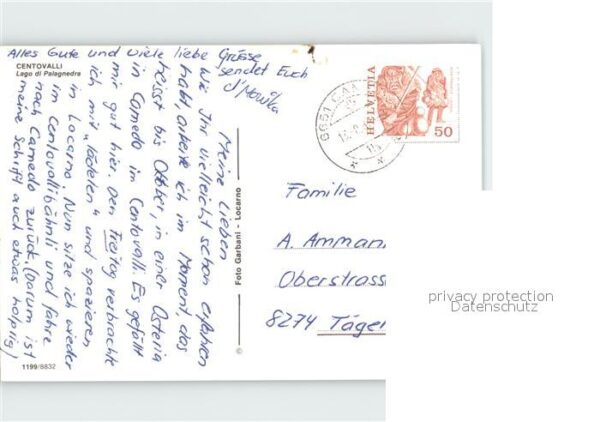 CENTOVALLI
Lago di Palagnedra
Meine Lieben
Wie Ihr vielleicht schon erfahren
habt, arbeite ich im Moment, das
heisst bis Oktober, in einer Osteria
in Camedo im Centovalli. Es gefällt
mir gut hier. Den Freitag verbrachte
ich mit "lädelen" und spazieren
in Locarno. Nun sitze ich wieder
im Centovallibähnli und fahre
nach Camedo zurück. (Darum ist
meine Schrift auch etwas holprig!)
Alles Gute und viele liebe Grüsse
sendet Euch
d'Monika
Foto Garbani - Locarno
1199/8832
HELVETIA
50
6651 CAM
Familie
A. Ammann
Oberstrass
8274 Täger
privacy protection
Datenschutz